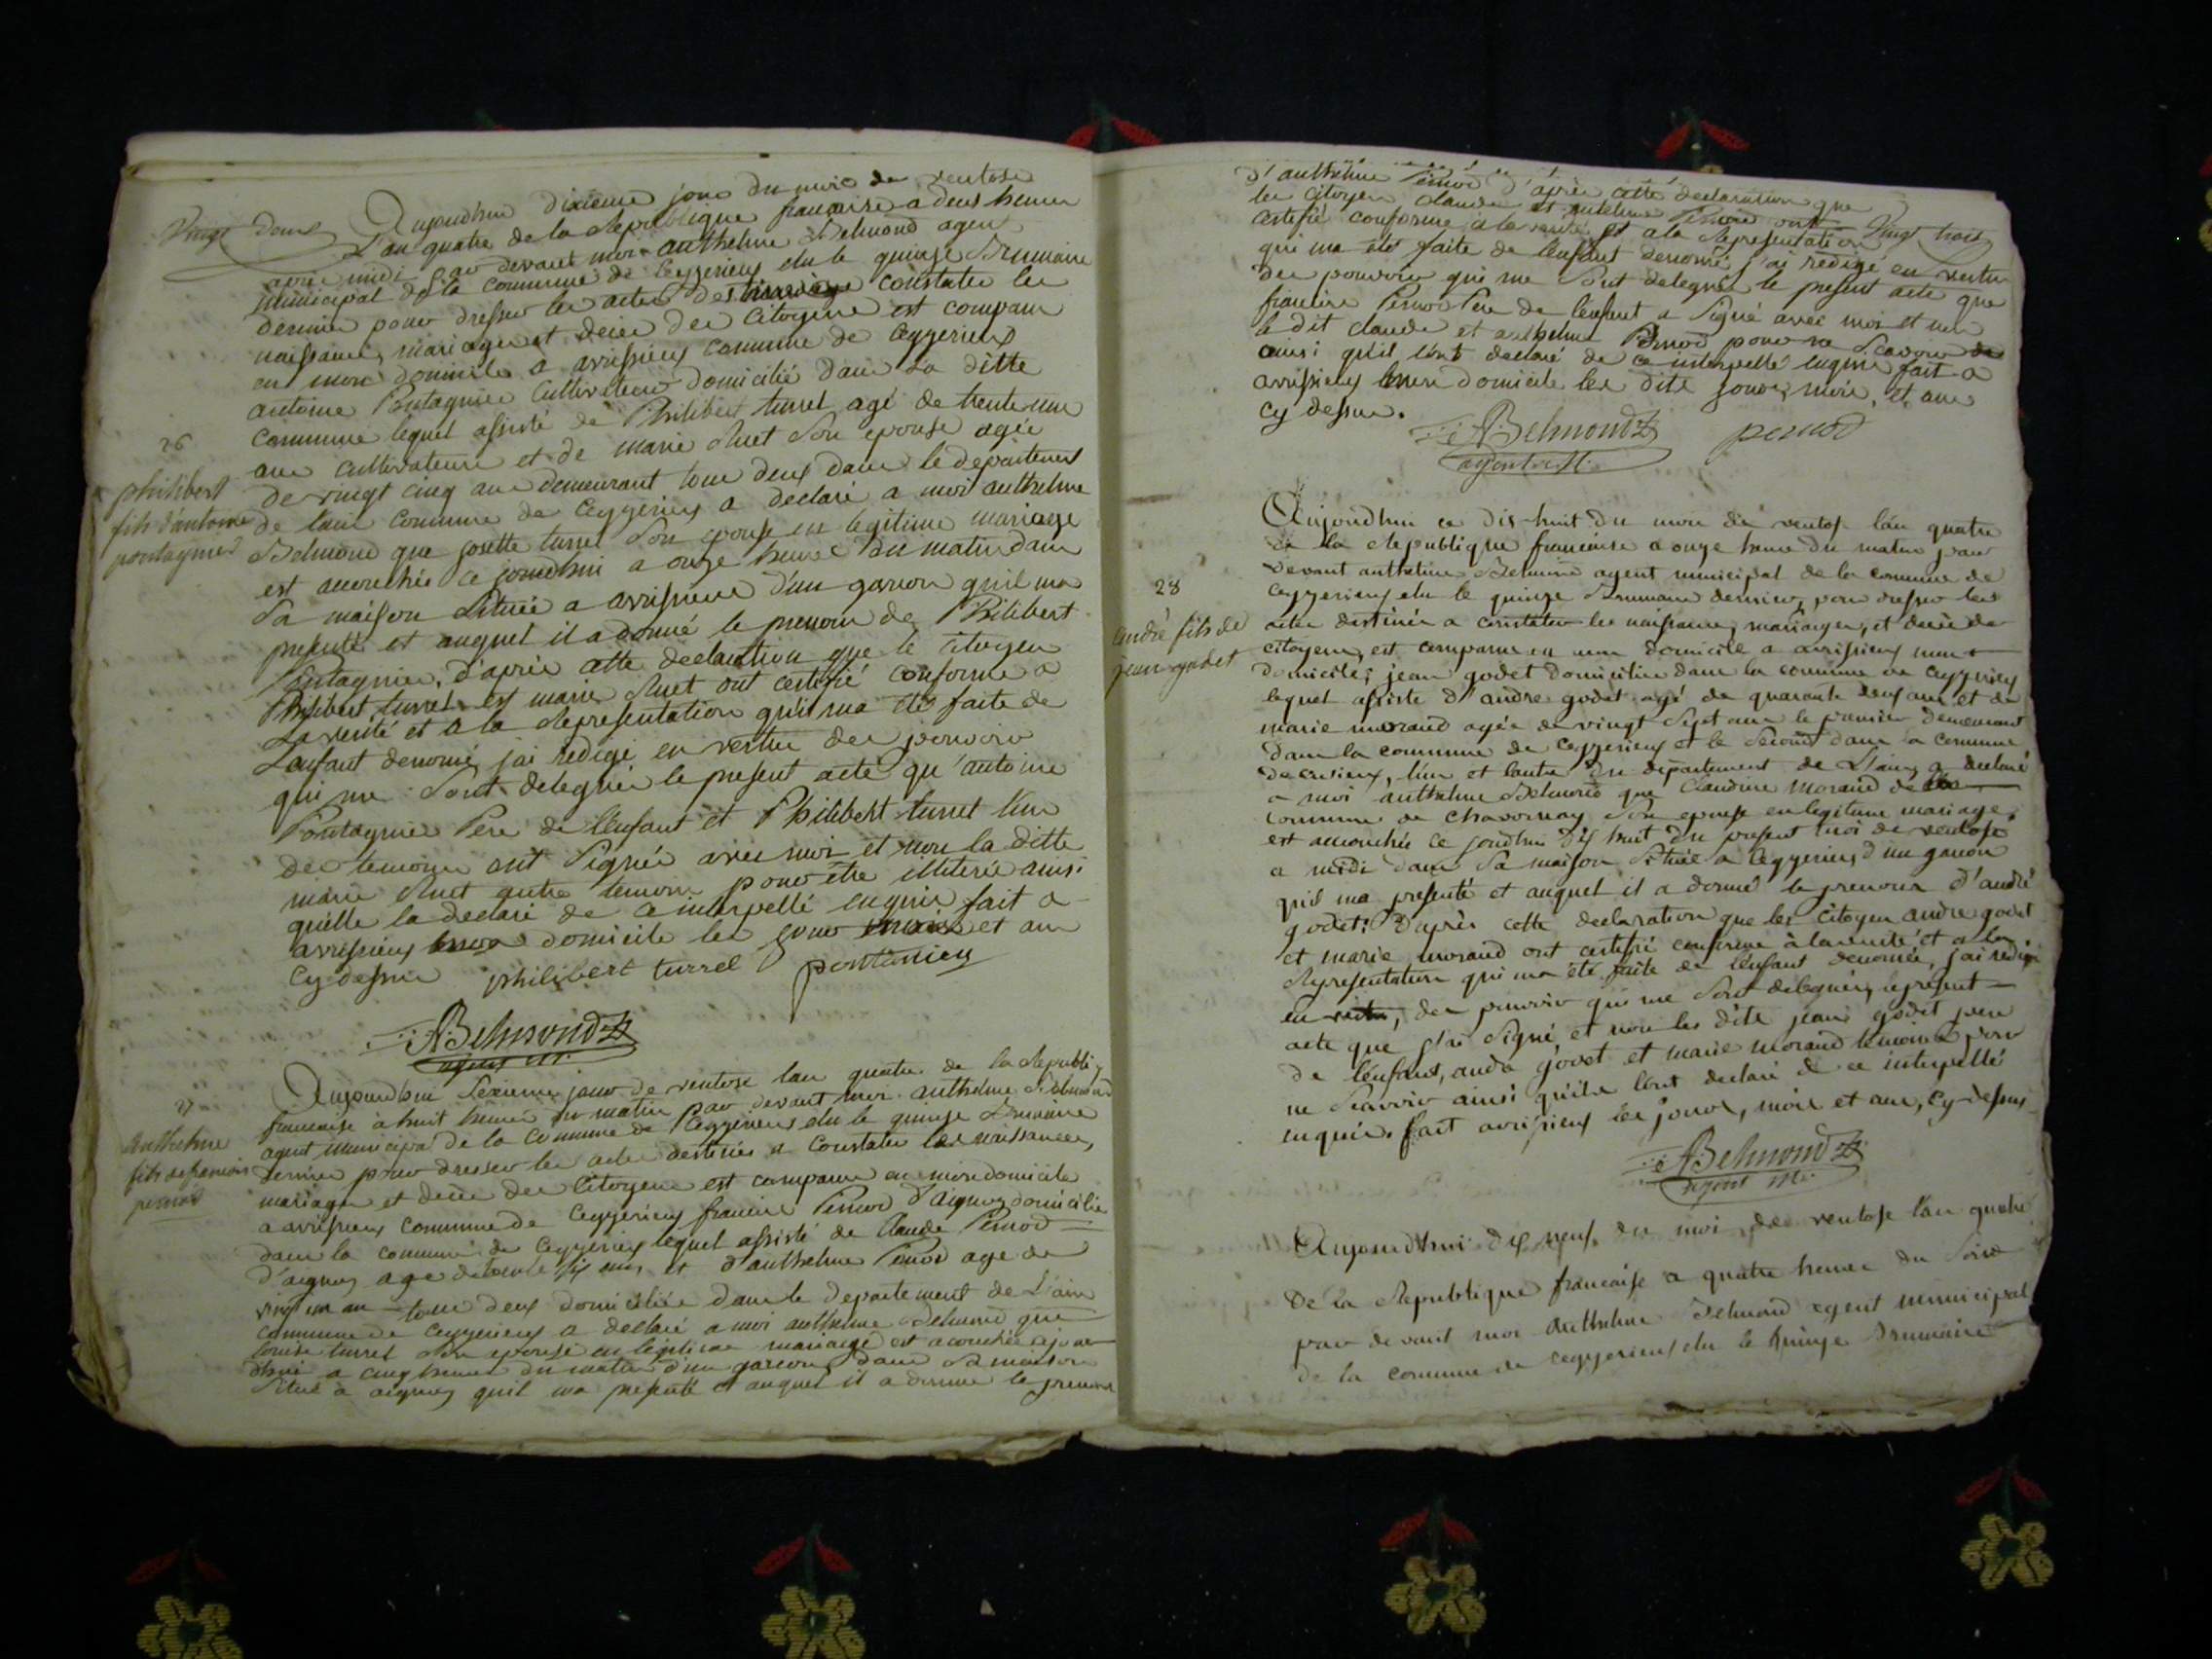 Vingt Deux
Aujourdhui dixieme jour du mois de ventose
L'an quatre de la Republique francaise a deus heures
apres midi par devant moi anthelme Belmond agent
municipal de la commune de Ceyzerieu elu le quinze Brumaire
dernier pour dresser les actes destinés a constater les
naissances, mariages et deces des Citoyens est comparu
en mon domicile a avrissieu commune de Ceyzerieux
antoine Pontagnier Cultivateur domicilié dans La ditte
Commune lequel assisté de Philibert turrel agé de trente un
ans cultivateur et de marie Ruet Son epouse agée
de vingt cinq ans demeurant tous deux dans le departement
de lain commune de Ceyzerieu a declaré a moi anthelme
Belmond que josette turrel Son epouse en legitime mariage
est accouchée ce jourdhui a onze heures du matin dans
Sa maison Située a avrissieux d'un garcon qu'il ma
presenté et auquel il a donné le prenom de Philibert
Pontagnier, d'après cette declaration que le citoyen
Philibert turrel et marie Ruet ont certifié conforme a
La verité et a la Representation qu'il ma été faite de
Lenfant denomé, j'ai redigé en vertu des pouvoirs
qui me Sont delegués le present acte qu'antoine
Pontagnier Pere de l'enfant et Philibert turrel l'un
des temoins ont Signés avec moi et non la ditte
marie Ruet autre temoin pour être illiterée ainsi
quelle la declaré de ce interpellé enquis fait a
avrissieux domicile les jours mois et ans
Cy dessus philibert turrel pontanien
ABelmond
agent M.
26
philibert
fils d'antoine
pontagnier
Aujourdhui Seixieme jour de ventose lan quatre de la Republiq
francaise à huit heures du matin par devant moi anthelme Belmond
agent municipal de la commune de Ceyzerieux elu le quinze Brumaire
dernier pour dresser les actes destinés a Constater les naissances,
mariages et deces des Citoyens est comparu en mon domicile
a avrissieux commune de Ceyzerieu francois Pernod d'aignoz domicilié
dans la commune de Ceyzerieu lequel assisté de Claude Pernod
d'aignoz agé de trente six ans et d'anthelme Pernod agé de
vingt un an tous deux domiciliés dans le departement de L'ain
commune de Ceyzerieux a declaré a moi anthelme Belmond que
louise turrel Son epouse en legitime mariage est accouchée cejour
dhui a cinq heures du matin d'un garcon dans Sa maison
Situé à aignoz quil ma presenté et auquel il a donné le prenom
27
Anthelme
fils de francois
pernod
d'anthelme Pernod d'après cette declaration que
les Citoyens claude et anthelme Pernod ont
certifié conforme a la verité et a la Representation
Vingt trois
qui ma été faite de l'enfant denomé, j'ai redigé en vertu
des pouvoirs qui me Sont delegués le present acte que
francois Pernod Pere de l'enfant a Signé avec moi et non
le dit claude et anthelme Pernod pour ne Scavoir
ainsi qu'il l'ont declaré de ce interpellé enquis fait a
avrissieux domicile les dits jours, mois, et ans
cy dessus.
ABelmond pernod
agent M.
Aujourdhui ce dis-huit du mois de ventose l'an quatre
de la Republique francaise a onze heures du matin par
devant anthelme Belmond agent municipal de la commune de
Ceyzerieux elu le quinze Brumaire dernier, pour dresser les
actes destinés a constater les naissances, mariages, et deces des
citoyens, est comparu en mon domicile a avrissieux mon
domicile, jean godet domicilié dans la commune de Ceyzerieu
lequel assiste d'andre godet agé de quarante deux ans et de
marie morand agée de vingt Sept ans le premier demeurant
dans la commune de Ceyzerieux et le Second dans la commune
de cusieux, l'un et lautre du departement de L'ain, a declaré
a moi anthelme Belmond que Claudine morand de la
commune de chavornay Son epouse en legitime mariage,
est accouchée ce jourdhui dis huit du present moi de ventose
a midi dans Sa maison Située a Ceyzerieu d'un garcon
quil ma presenté et auquel il a donné le prenom d'andré
godet: d'après cette declaration que les citoyen andre godet
et marie morand ont certifié conforme à la verité et a la
Representation qui ma été faite de l'enfant denomée, j'ai redigé
en vertu, des pouvoir qui me Sont delegués, le present
acte que j'ai Signé, et non les dits jean godet pere
de l'enfant, andre godet et marie morand temoins pour
ne Scavoir ainsi qu'ils l'ont declaré de ce interpellé
enquis. fait avrissieux les jours, mois et ans, cy-dessus
ABelmond
agent M.
28
andré fils de
jean godet
Aujourdhui dix neuf du moi de ventose l'an quatre
De la Republique francaise a quatre heures du Soire
par devant moi Anthelme Belmond agent municipal
de la commune de Ceyzerieux elu le quinze Brumaire